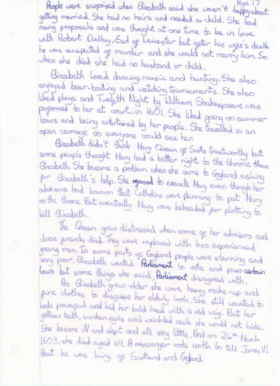 Age 17
People were surprised when Elizabeth said she wasn't happy about
getting married. She had no heirs and needed a child. She had
many proposals and was thought at one time to be in love
with Robert Dudley, Earl of Leicester but after his wife's death
he was suspected of murder and she could not marry him. So
when she died she had no husband or child.
Elizabeth loved dancing, music and hunting. She also
enjoyed bear-baiting and watching tournaments. She also
liked plays and Twelfth Night by William Shakespeare was
performed to her at court in 1601. She liked going on summer
tours and being entertained by her people. She travelled in an
open carriage so everyone could see her.
Elizabeth didn't think Mary Queen of Scots trustworthy but
some people thought Mary had a better right to the throne than
Elizabeth. She became a problem when she came to England asking
for Elizabeth's help. She refused to execute Mary even though her
advisors had known that Catholics were planning to put Mary
on the throne. But eventually Mary was beheaded for plotting to
kill Elizabeth.
The Queen grew distressed when some of her advisors and
close friends died. They were replaced with less experienced
young men. In some parts of England people were starving and
very poor. Elizabeth wanted Parliament to vote and pass certain
laws but some things she said, Parliament disagreed with.
As Elizabeth grew older she wore heavy make-up and
fine clothes to disguise her elderly looks. She still wanted to
look youngest and hid her bald head with a red wig. But her
yellow teeth, sunken eyes and wrinkled neck she could not hide.
She became ill and slept and ate very little. And on 24th March
1603, she died aged 69. A messenger rode north to tell James VI
that he was King of Scotland and England.